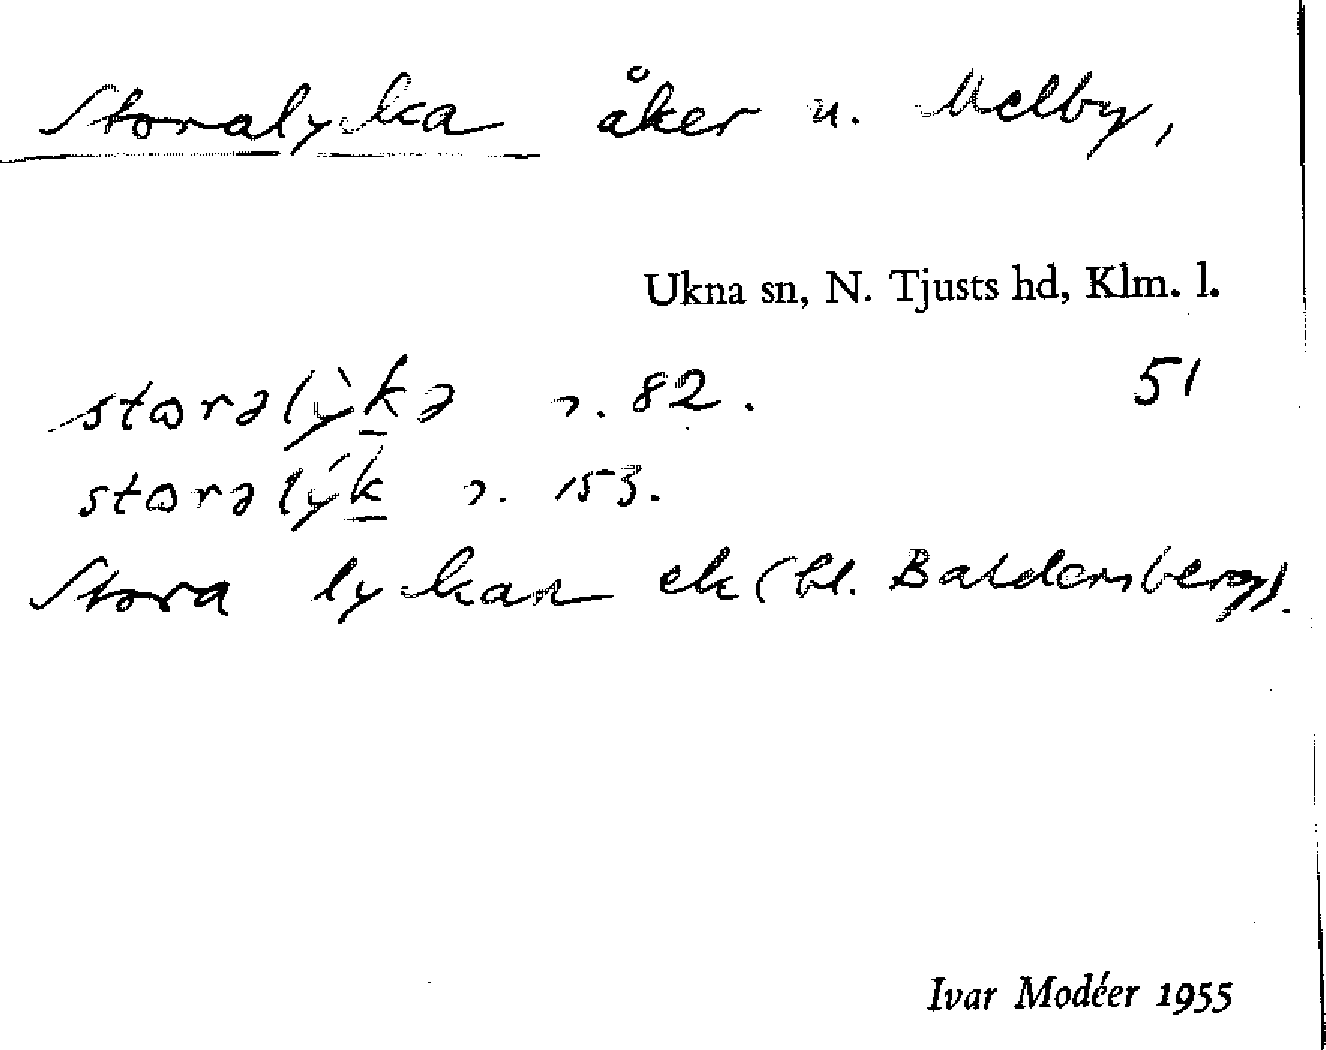 Storalycka åker u. Melby,
Ukna sn, N. Tjusts hd, Klm. l.
storəlỳkə ɔ. 82. 51
storəlýk ɔ. 153.
Stora lyckan ek (bl. Baldersberg).
Ivar Modéer 1955